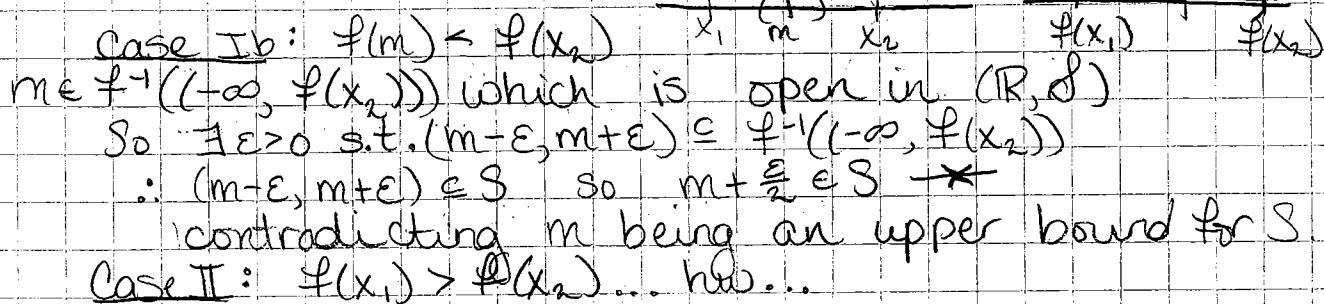 x₁ m x₂ f(x₁) f(x₂)
Case Ib: f(m) < f(x₂)
m ∈ f⁻¹((-∞, f(x₂))) which is open in (ℝ, 𝒮)
So ∃ε>0 s.t. (m-ε, m+ε) ⊆ f⁻¹((-∞, f(x₂))
∴ (m-ε, m+ε) ⊆ S so m + ε/2 ∈ S
contradicting m being an upper bound for S.
Case II: f(x₁) > f(x₂)... hw...